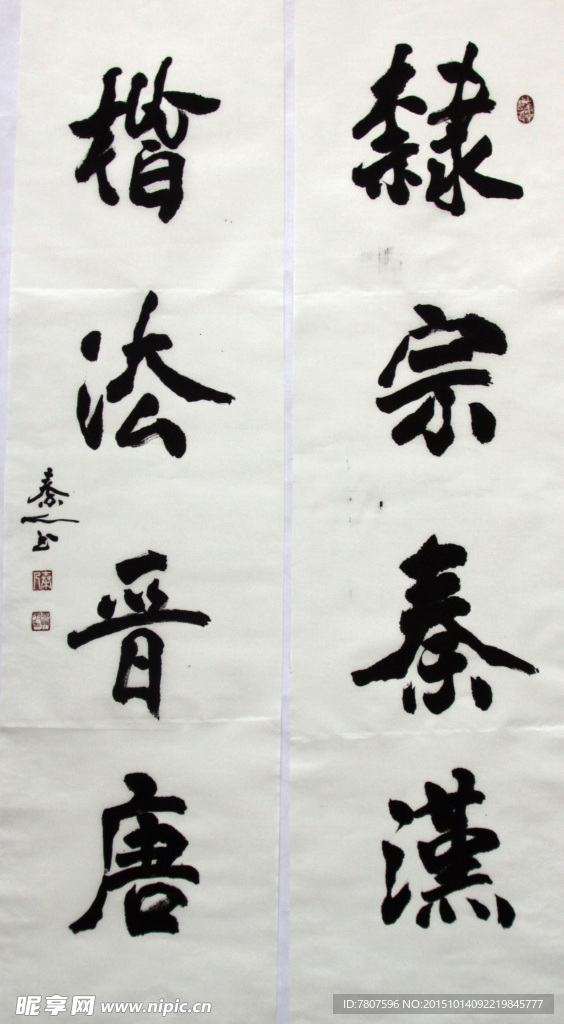 隸宗秦漢
楷法晋唐
秦
书
昵享网 www.nipic.cn
ID:7807596 NO:20151014092219845777